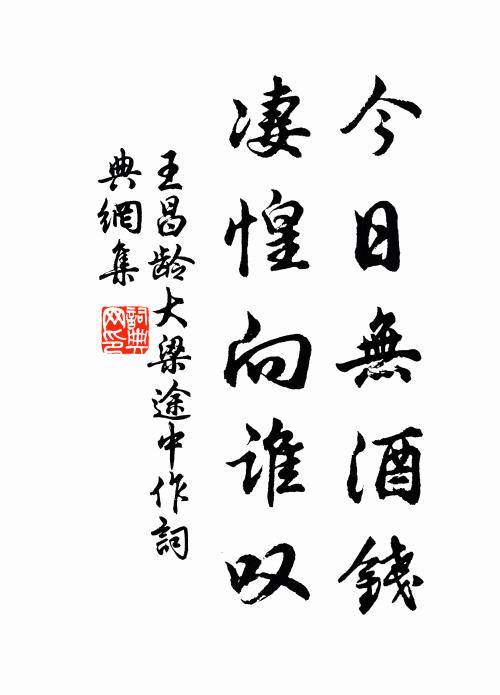 今日無酒錢
凄惶向谁叹
王昌龄大梁途中作詞
典網集
詞典
网印